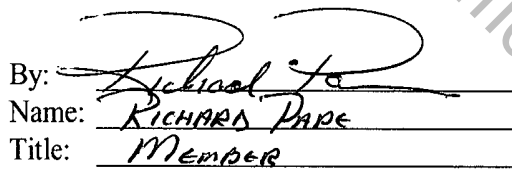 By: Richard Pa
Name: RICHARD PAPE
Title: MEMBER